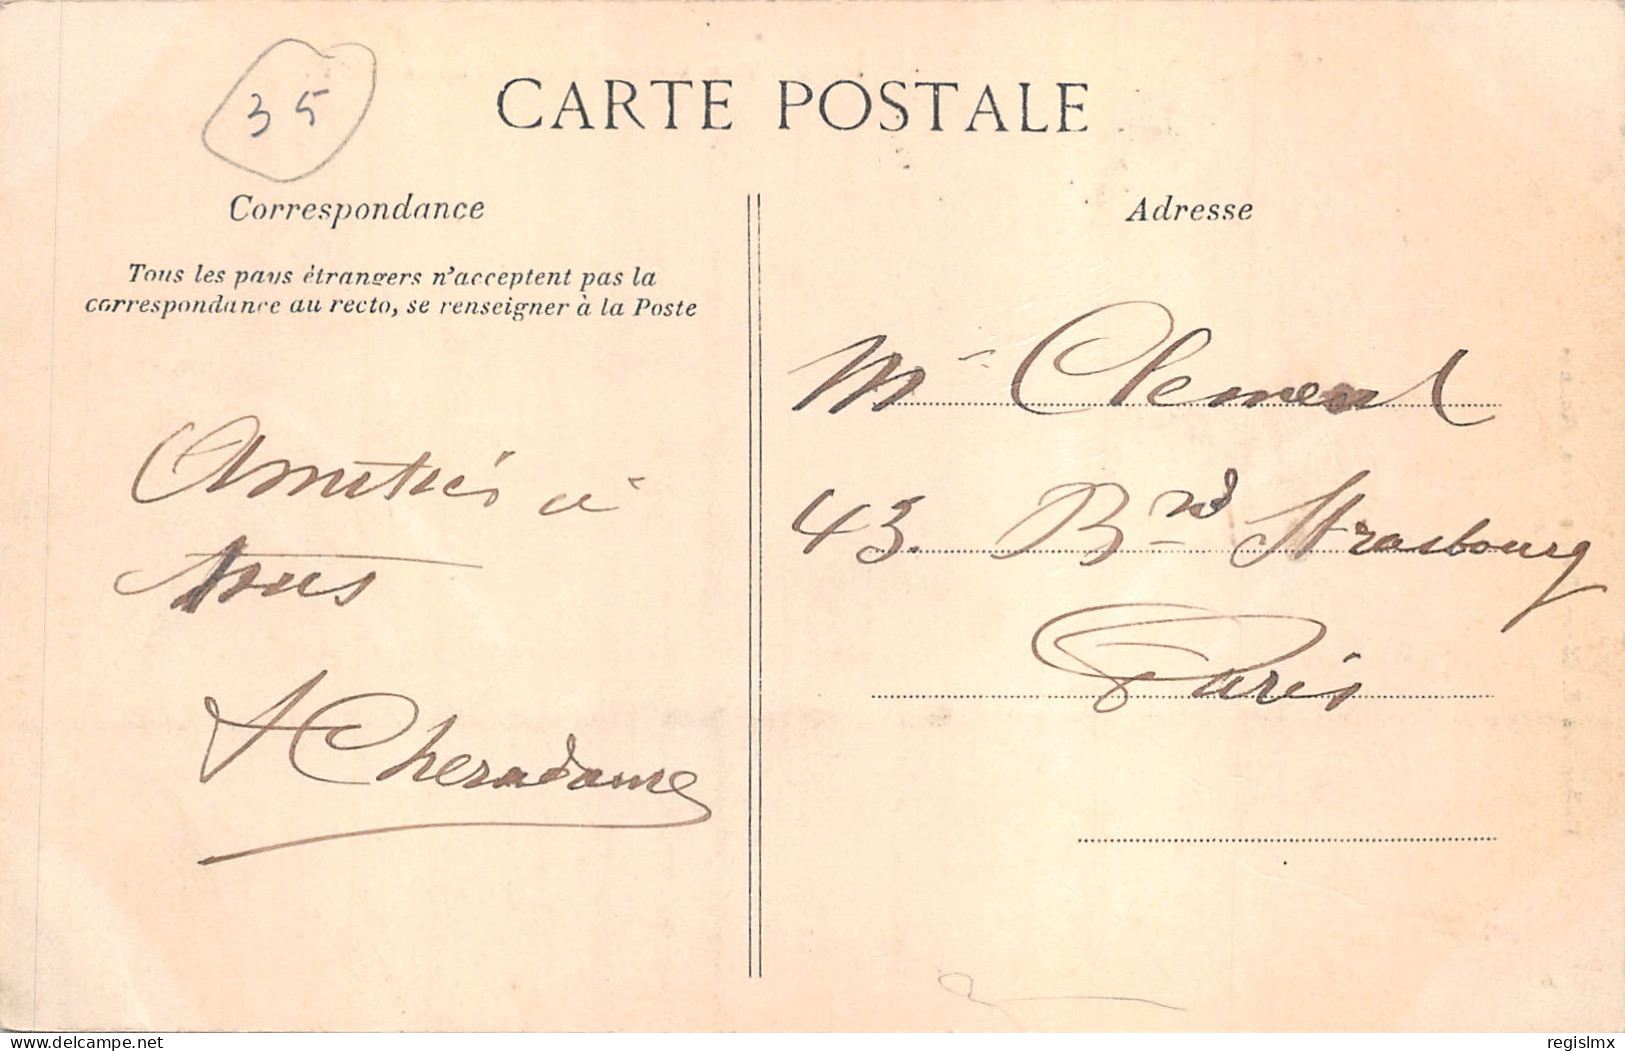 35
CARTE POSTALE
Correspondance
Tous les pays étrangers n'acceptent pas la
correspondance au recto, se renseigner à la Poste
Amitiés à
tous
Cheradame
Adresse
Mr Clement
43. Brd Strasbourg
Paris
delcampe.net
regislmx